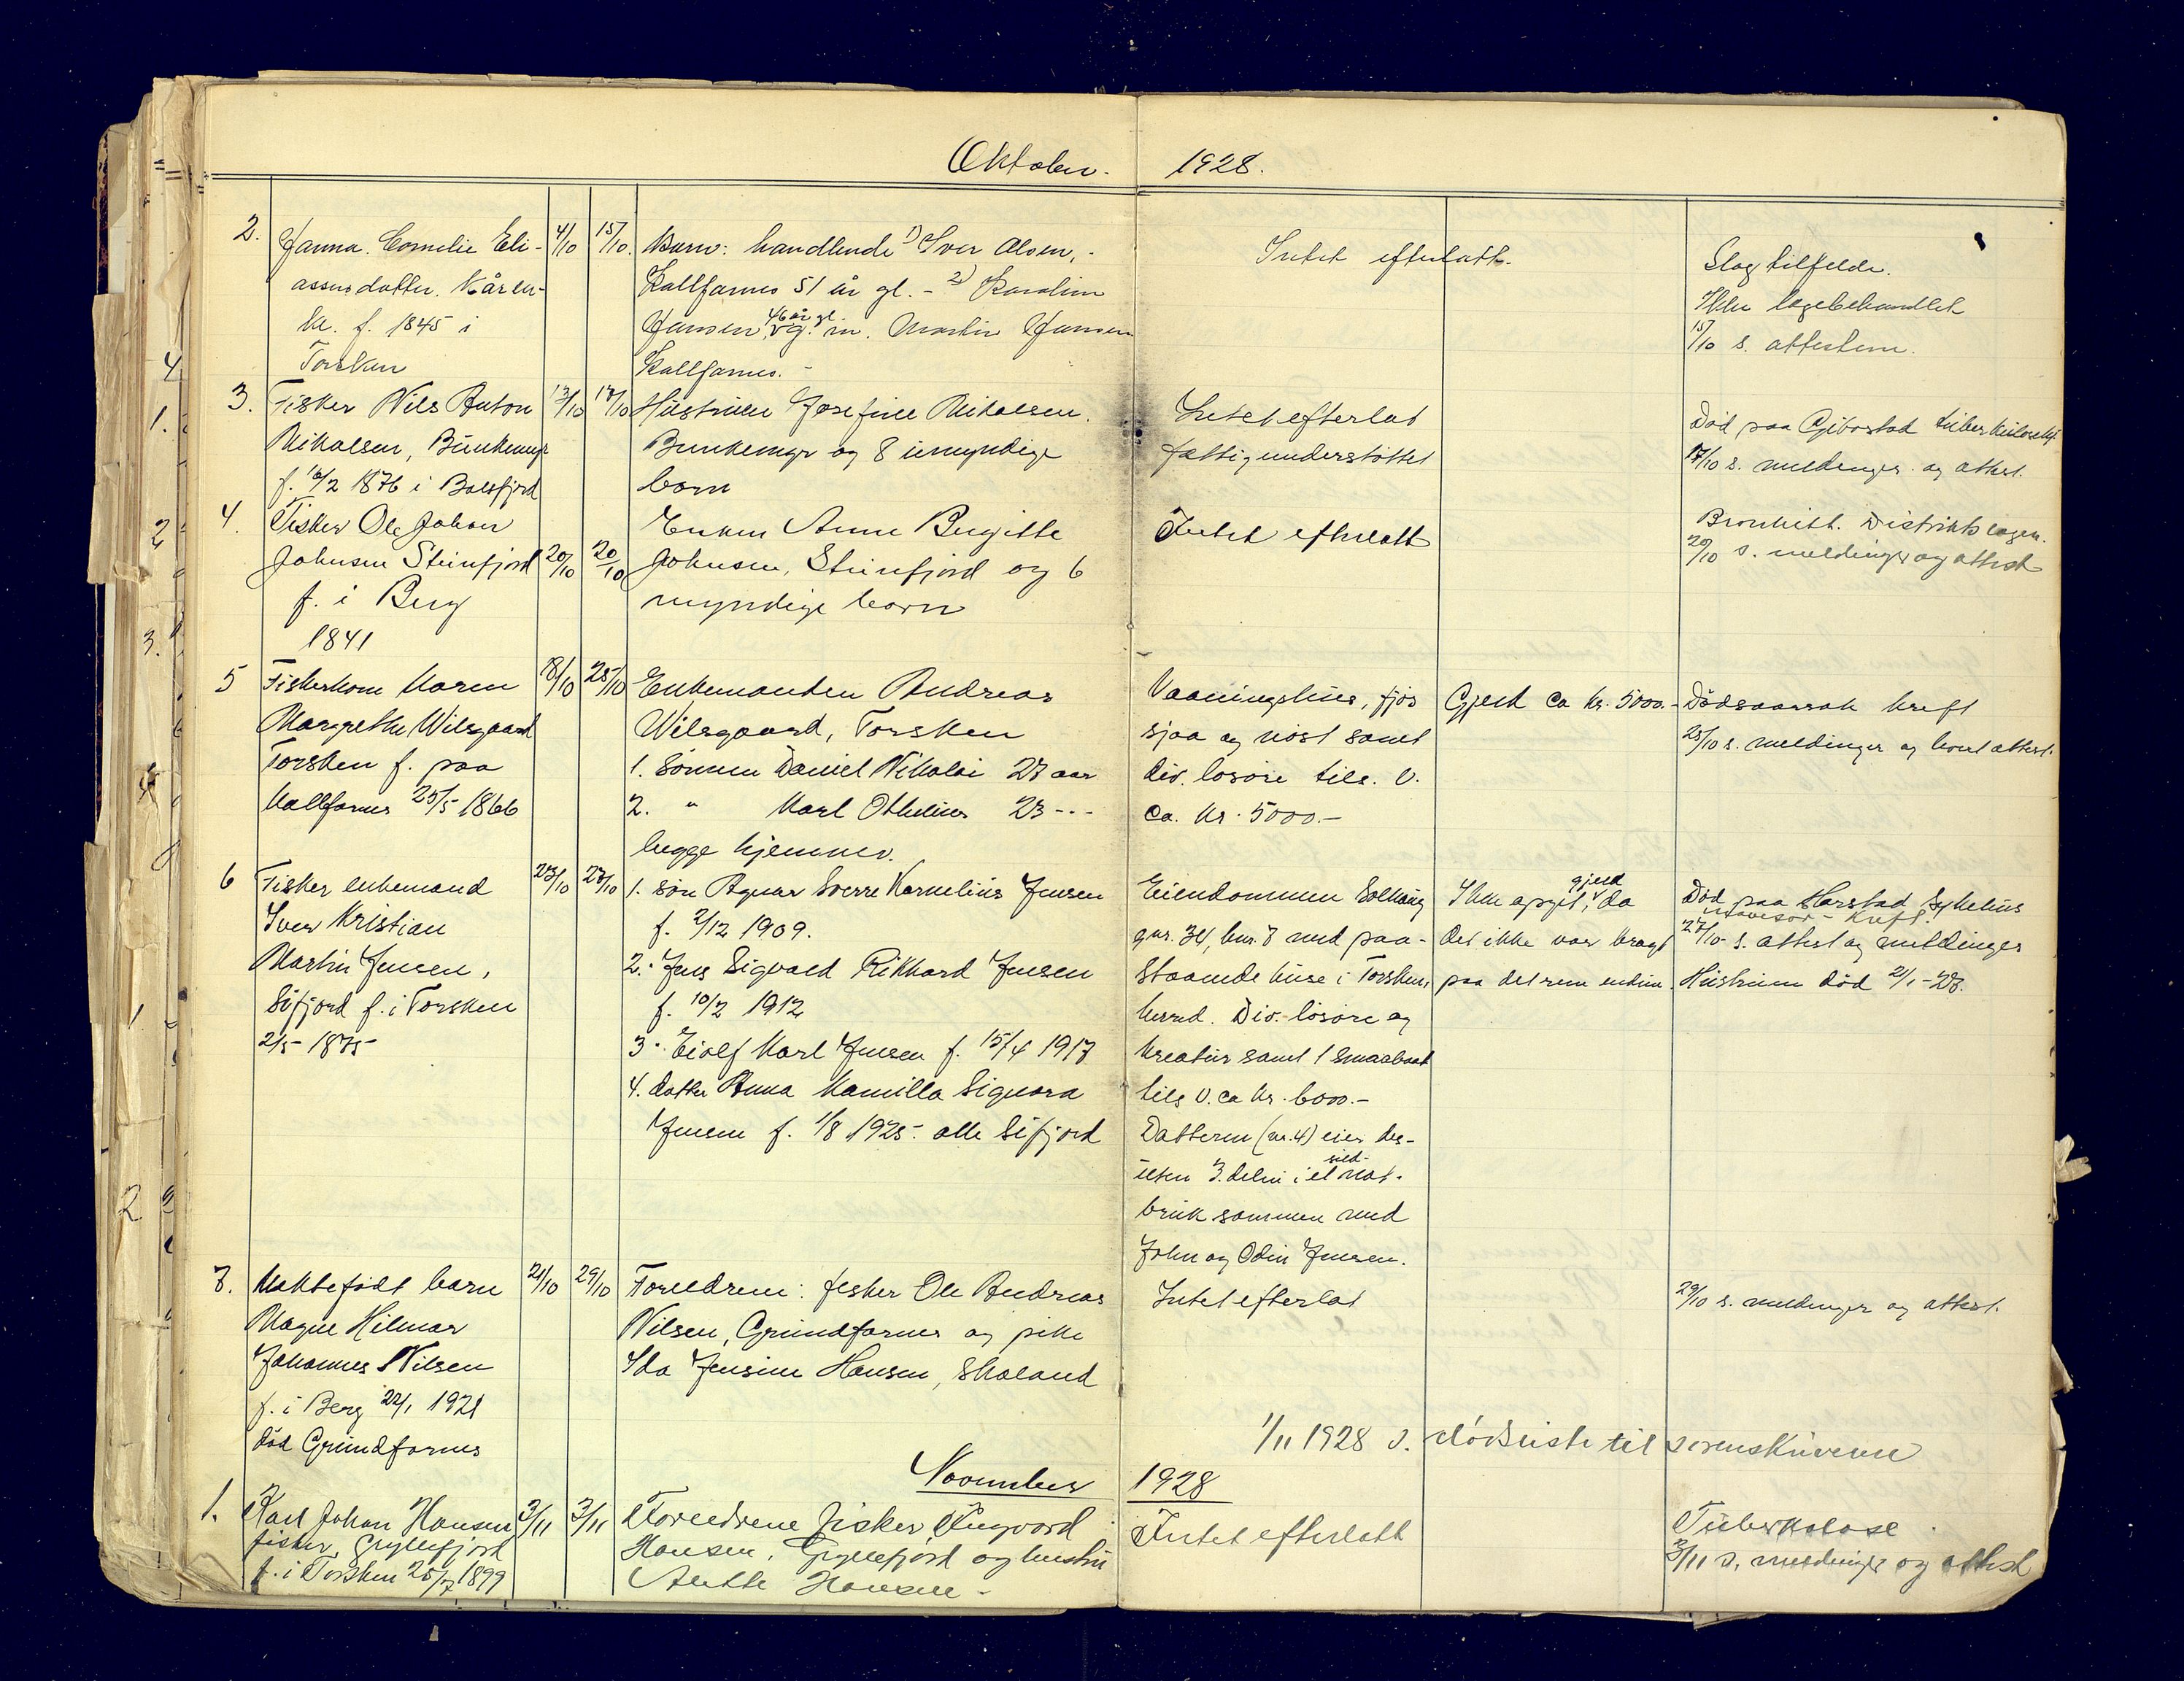 Oktober. 1928.
2. Hanna Cornelie Eli- 4/10 15/10. Barn: handlende 1) Iver Olsen, - Intet efterlatt. Slagtilfelde.
assensdatter. Kåren- Kallfarnes 51 år gl. - 2) Karoline Ikke lægebehandlet
kl. f. 1845 i Jensen, 46 år gl. vg. m. Martin Jensen 15/10 s. attesten.
Torsken Kallfarnes. -
3. Fisker Nils Anton 12/10 17/10 Hustruen Josefine Nikolsen. Intet efterlat Död paa Gibostad tuberkulosehj.
Nikolsen, Bunkemyr Bunkemyr og 8 umyndige fattigunderstöttet 17/10 s. meldinger og attest.
f. 16/2 1876 i Balsfjord born
4. Fisker Ole Johan Enken Anne Bergitte Intet efterlatt Bronkitt. Distriktslægen.
Johnsen Steinfjord 20/10 20/10 Johnsen, Steinfjord og 6 20/10 s. meldinger og attest
f. i Berg myndige born
1841
5 Fiskerkone Karen 18/10 25/10 Enkemanden Andreas Vaaningshus, fjös Gjeld ca kr. 5000.- Dödsaarsak kreft
Margrethe Wilsgaard Wilsgaard, Torsken sjaa og nöst samt 25/10 s. meldinger og attest.
Torsken f. paa 1. Sönnen Daniel Nikolai 27 aar div. lösöre tils. v.
Kallfarnes 25/5 1866 2. " Karl Othelius 23 - - - ca. kr. 5000.-
begge hjemmev.
6 Fisker enkemand 23/10 27/10 1. sön Ragnar Sverre Kornelius Jensen Eiendommen Solhaug Ikke opgit gjeld, da Död paa Harstad Sykehus
Iver Kristian f. 2/12 1909. gnr. 34, bnr. 7 med paa- det ikke var bragt - Kreft. 27/10 s. attest og meldinger
Martin Jensen, 2. Jens Sigvald Rikhard Jensen staaende huse i Torsken paa det rene endnu. Hustruen död 21/1-28.
Sifjord f. i Torsken f. 10/2 1912 herred. Div. lösöre og
2/5 1875 3. Eiolf Karl Jensen f. 15/4 1917 kreatur samt 1 smaabaat
4. datter Anna Kamilla Signora tils v. ca kr. 6000.-
Jensen f. 1/8 1925. alle Sifjord Datteren (nr. 4) eier des-
uten 3. delen i et sild- not-
bruk sammen med
John og Odin Jensen.
7. Uektefödt barn 21/10 29/10 Foreldrene: fisker Ole Andreas Intet efterlat 29/10 s. meldinger og attest.
Magne Hilmar Nilsen, Grundfarnes og pike
Johannes Nilsen Ida Jensine Hansen, Skaland
f. i Berg 22/1 1921
död Grundfarnes
1/11 1928 s. dödsliste til sorenskriveren
November 1928
1. Karl Johan Hansen 3/11 3/11 Foreldrene fisker Ingvard Intet efterlatt Tuberkulose.
fisker, Gryllefjord Hansen, Gryllefjord og hustru 3/11 s. meldinger og attest
f. i Torsken 25/7 1899 Hansen -